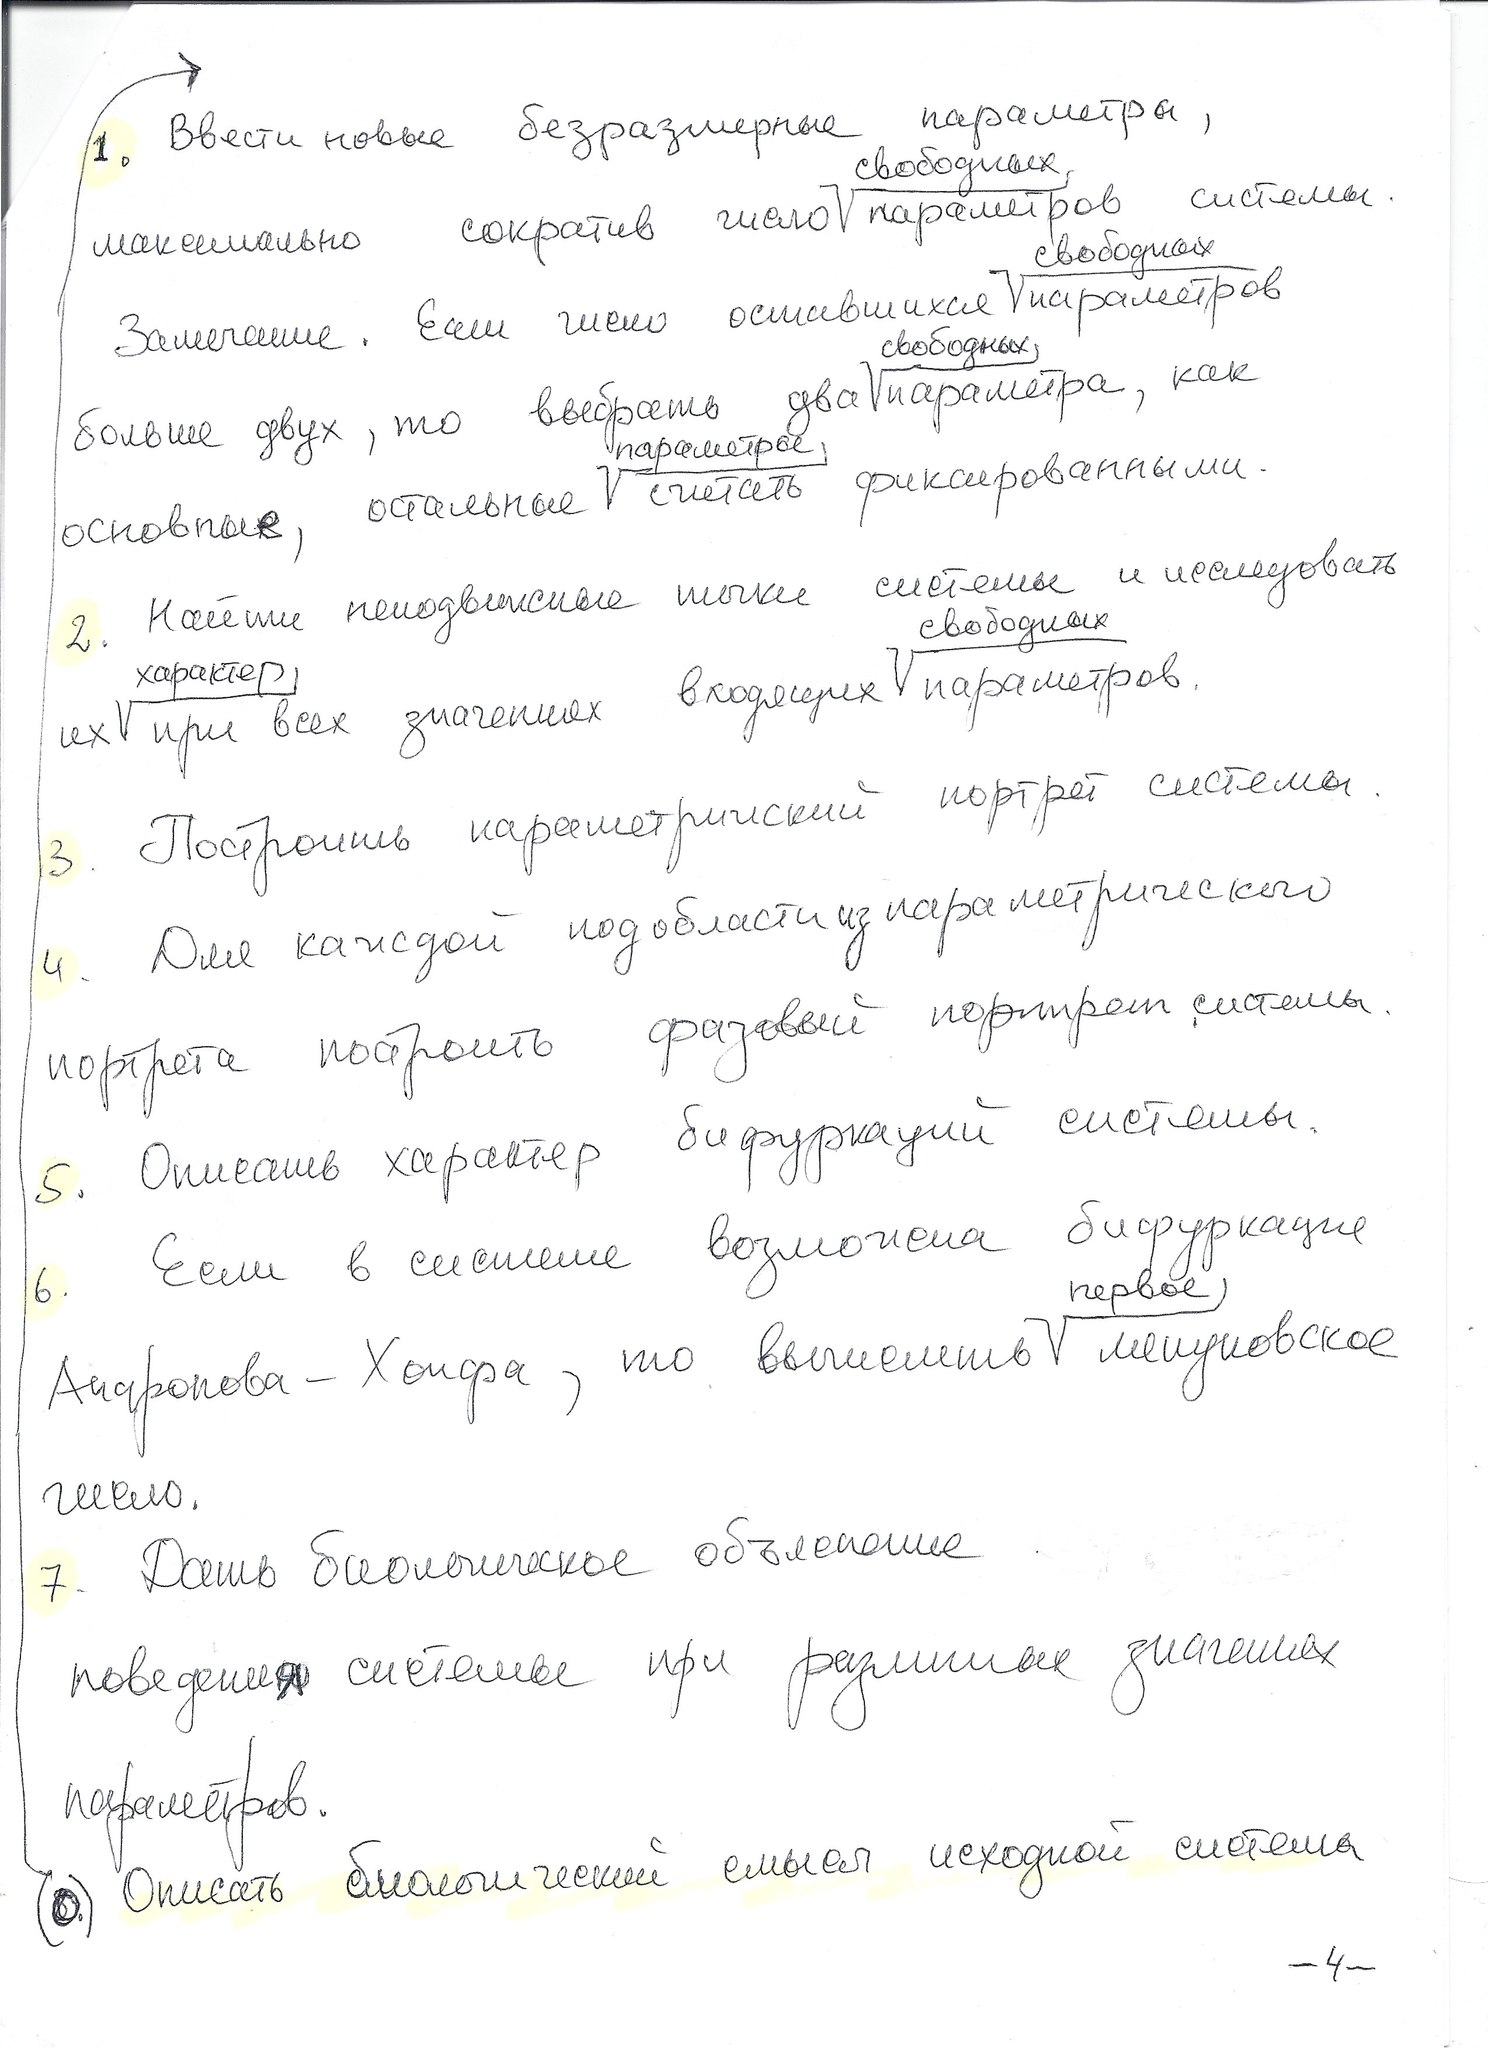 1. Ввести новые безразмерные параметры,
свободных
максимально сократив число параметров системы.
свободных
Замечание. Если число оставшихся параметров
свободных
больше двух, то выбрать два параметра, как
параметры
основные, остальные считать фиксированными.
2. Найти неподвижные точки системы и исследовать
характер свободных
их при всех значениях входящих параметров.
3. Построить параметрический портрет системы.
4. Для каждой подобласти из параметрического
портрета построить фазовый портрет системы.
5. Описать характер бифуркаций системы.
6. Если в системе возможна бифуркация
первое
Андронова – Хопфа, то вычислить ляпуновское
число.
7. Дать биологическое объяснение
поведения системы при различных значениях
параметров.
(0.) Описать биологический смысл исходной системы
–4–